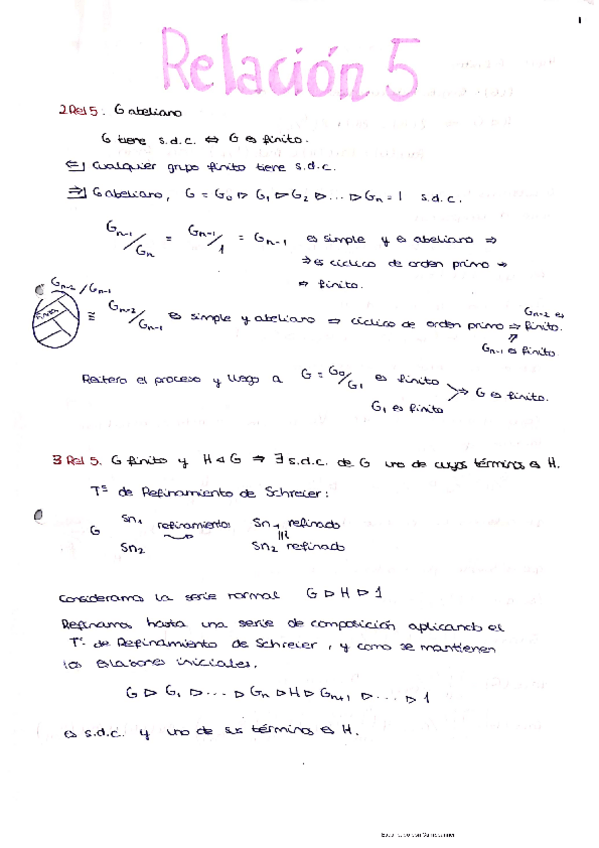 1
Relación 5
2Rel5. G abeliano
G tiene s.d.c. ⇔ G es finito.
⇐] Cualquier grupo finito tiene s.d.c.
⇒] G abeliano, G = G₀ ▷ G₁ ▷ G₂ ▷ ... ▷ Gn = 1 s.d.c.
Gn-1/Gn = Gn-1/1 = Gn-1 es simple y es abeliano ⇒
⇒ es cíclico de orden primo ⇒
⇒ finito.
Gn-2/Gn-1
≅ Gn-2/Gn-1 es simple y abeliano ⇒ cíclico de orden primo ⇒ finito.
Gn-2 es
⇑
Gn-1 es finito
Reitero el proceso y llego a G = G₀/G₁ es finito
G₁ es finito
⇒ G es finito.
3 Rel 5. G finito y H ◁ G ⇒ ∃ s.d.c. de G uno de cuyos términos es H.
Tª de Refinamiento de Schreier:
G Sn₁ refinamiento Sn₁ refinado
Sn₂ Sn₂ refinado
Consideramos la serie normal G ▷ H ▷ 1
Refinamos hasta una serie de composición aplicando el
Tª de Refinamiento de Schreier, y como se mantienen
los eslabones iniciales.
G ▷ G₁ ▷ ... ▷ Gn ▷ H ▷ Gn+1 ▷ ... ▷ 1
es s.d.c. y uno de sus términos es H.